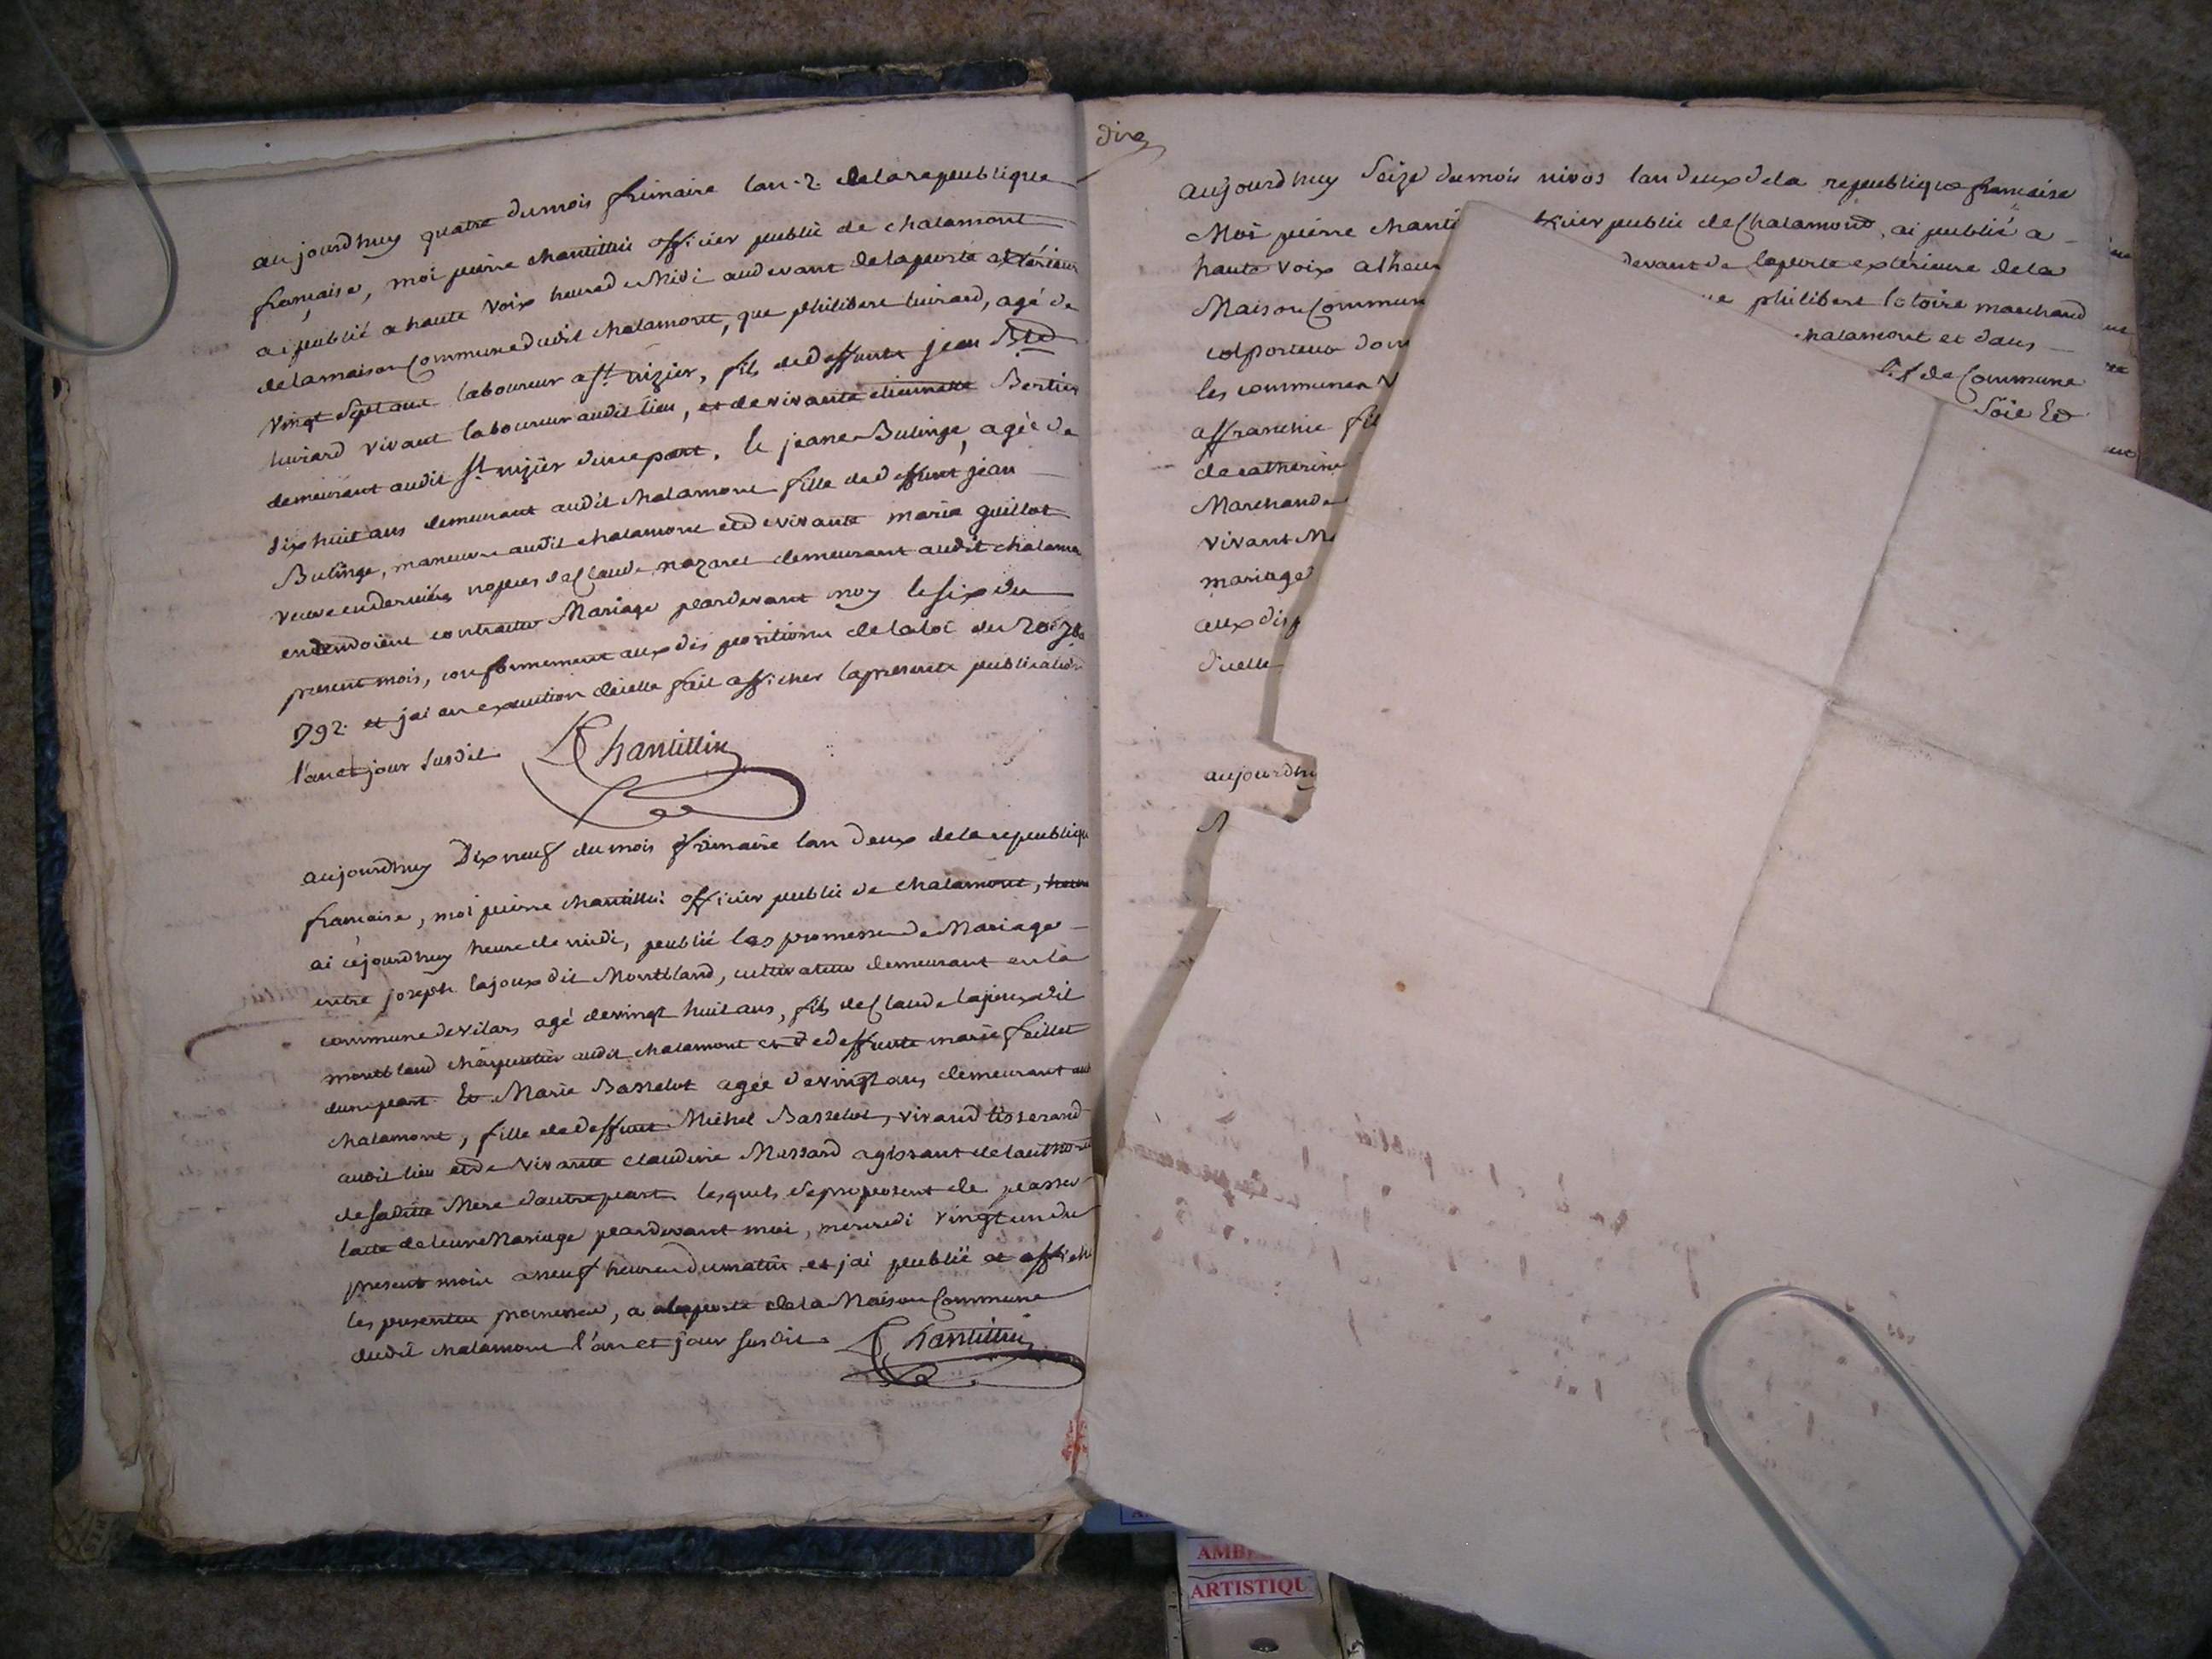 aujourdhuy quatre dumois frimaire lan .2. delarepublique
française, moi pierre chantillin officier public de chalamont
ai publié a haute voix heured eMidi audevant delaporte extérieur
delamaison Commune dudit chalamont, que philibert luirard, agé de
vingt sept ans laboureur a st. nizier, fils dedeffunt jean
luirard vivant laboureur audit lieu, et devivante etiennette Bertier
demeurant audit st. nizier dune part. Et jeanne Bulinge, agée de
dix huit ans demeurant audit chalamont fille dedeffunt jean
Bulinge, maneuvre audit chalamont etdevivante marie guillot
veuve enderniéres nopces declaude nazaret demeurant audit chalamon
entendoient contracter Mariage pardevant moy le six du
present mois, conformement aux dis positions delaloi du 20e 7bre
1792. et jai en execution dicelle fait afficher lapresente publication
l'an et jour susdit Chantillin
aujourdhuy Dix neuf du mois frimaire lan deux delarepublique
francaise, moi pierre chantillin officier public de chalamont,
ai cejourdhuy heure de midi, publié les promesses de Mariage
entre joseph lajoux dit Montbland, cultivateur demeurant en la
commune devilars agé devingt huit ans, fils declaude lajoux dit
montbland charpentier audit chalamont et dedeffunte marie faillet
dunepart. Et Marie Basselot agée devingt ans, demeurant aud
chalamont, fille dedeffunt Michel Basselot, vivand tisserand
audit lieu etde vivante claudine Massard agissant delauthorité
de saditte Mere dautrepart. lesquels se proposent de passer
lacte de leur Mariage pardevant moi, mercredi vingt un du
present mois aneuf heures dumatin et jai publié et affiché
les presentes promesses, a alaporte dela Maison Commune
dudit chalamont l'an et jour susdit. Chantillin
dire
aujourdhuy Seize dumois nivos lan deux dela republique francaise
Moi pierre chanti icier public de Chalamont, ai publié a
haute voix alheur devant de laporte extérieure dela
Maison Commun e philibert lotoire marchand
colporteur dom halamont et dans
les communes de Commune
affranchie fil Soie Et
decatherine
Marchande
vivant M
mariage
aux disp
dicelle
aujourdhu
AMB
ARTISTIQU